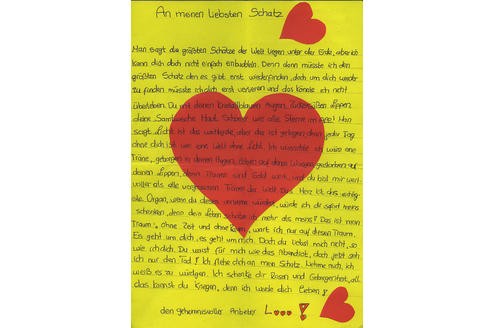 An meinen liebsten Schatz
Man sagt die größten Schätze der Welt liegen unter der Erde, aber ich
kann dich doch nicht einfach einbuddeln. Denn dann müsste ich den
größten Schatz den es gibt erst wiederfinden, doch um dich wieder
zu finden müsste ich dich erst verlieren und das könnte ich nicht
überleben. Du mit deinen Kristallblauen Augen, Zuckersüßen Lippen,
deine Samtweiche Haut. Schöner wie alle Sterne im Man
sagt Licht ist das wertvollste, aber das ist gelogen, denn jeder Tag
ohne dich ist wie eine Welt ohne Licht. Ich wünschte ich wäre eine
Träne, geboren in deinen Augen, leben auf deinen Wangen, gestorben auf
deinen Lippen, denn Tränen sind Gold wert, und du bist mir wert-
voller als alle vergossenen Tränen der Welt. Das Herz ist das wichtig-
ste Organ, wenn du dieses verlieren würdest, würde ich dir sofort meins
schenken, denn dein Leben schätze ich mehr als meins! Das ist mein
Traum, ohne Zeit und ohne Raum, wart ich nur auf diesen Traum.
Es geht um dich, es geht um mich. Doch du liebst mich nicht, so
wie ich dich. Du warst für mich wie das Abendlicht, doch jetzt seh
ich nur den Tod! Ich flehe dich an mein Schatz. Nehme mich, ich
weiß es zu würdigen. Ich schenke dir Rosen und Geborgenheit, all
das kannst du kriegen, denn ich werde dich lieben!
den geheimnisvoller Anbeter L...!